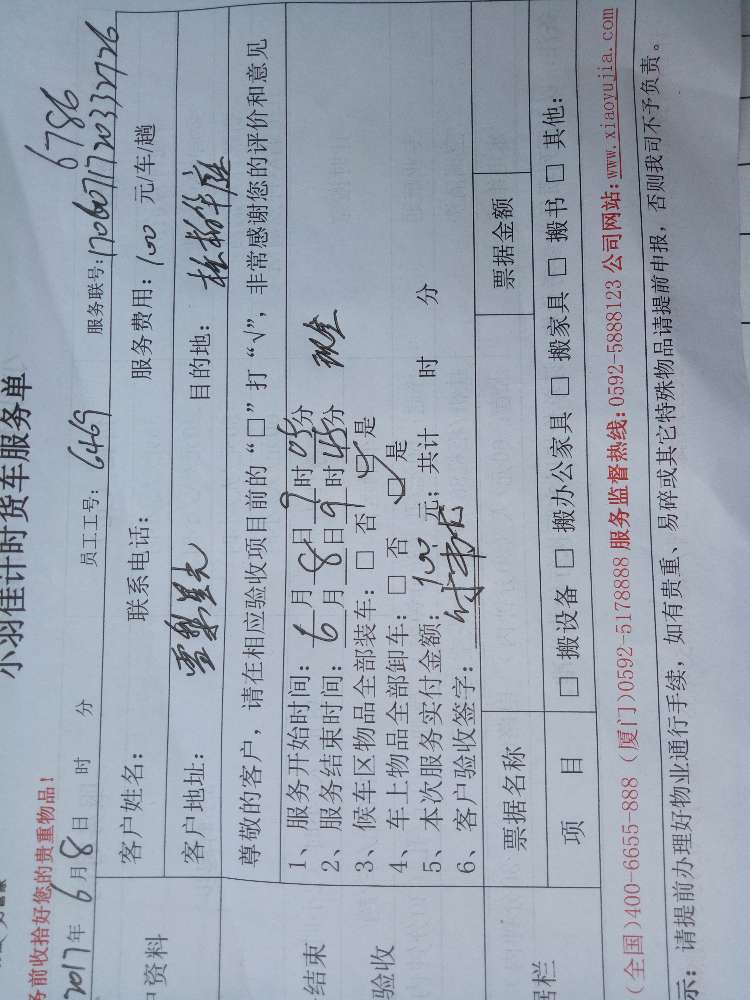 小羽佳计时货车服务单
务前收拾好您的贵重物品!
6786
2017年 6月 8日 时 分 员工工号: 6469 服务联号: 17060717203327126
户资料
客户姓名: 联系电话: 服务费用: 100 元/车/趟
客户地址: 目的地:
尊敬的客户, 请在相应验收项目前的“□”打“√”, 非常感谢您的评价和意见
结束
验收
1、服务开始时间: 6 月 8 日 7 时 05 分
2、服务结束时间: 月 8 日 9 时 45 分 现金
3、候车区物品全部装车: □ 否 ☑ 是
4、车上物品全部卸车: □ 否 ☑ 是
5、本次服务实付金额: 100 元; 共计 时 分
6、客户验收签字:
据栏
票据名称 票据金额
项 目 □ 搬设备 □ 搬办公家具 □ 搬家具 □ 搬书 □ 其他:
(全国)400-6655-888 (厦门)0592-5178888 服务监督热线:0592-5888123 公司网站:www.xiaoyujia.com
示: 请提前办理好物业通行手续, 如有贵重、易碎或其它特殊物品请提前申报, 否则我司不予负责。